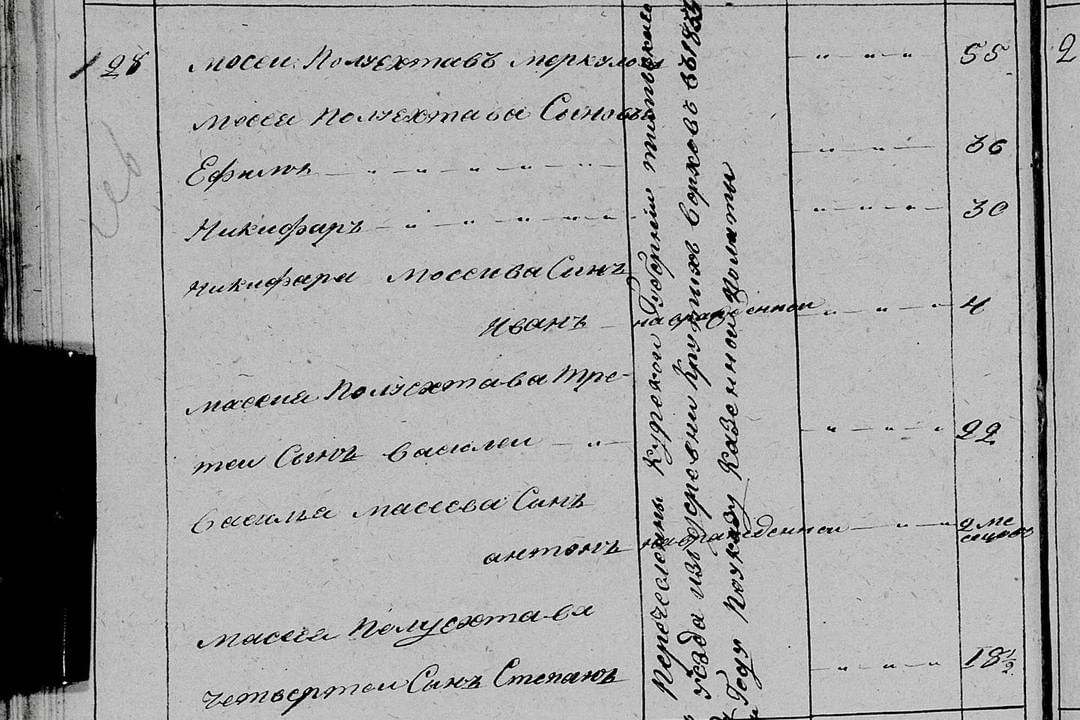 128 Мосеи Полуехтавъ Меркулова 55
Мосеа Полуехтава Сыновья
Ефимъ 36
Никифаръ 30
Никифара Мосеива Синъ
Иванъ навражденнои 4
Массиа Полуехтава тре-
теи Сынъ Василеи 22
Василья Массева Сынъ
антонъ навражденнои 2 ме
сецовъ
Массиа Полуехтава
четвертои Сынъ Степанъ 18 1/2
Перечеслены Курской Губернии
уезда изъ деревни Крутихъ Верховъ въ 18
Году Поуказу Казеннои Полаты
2